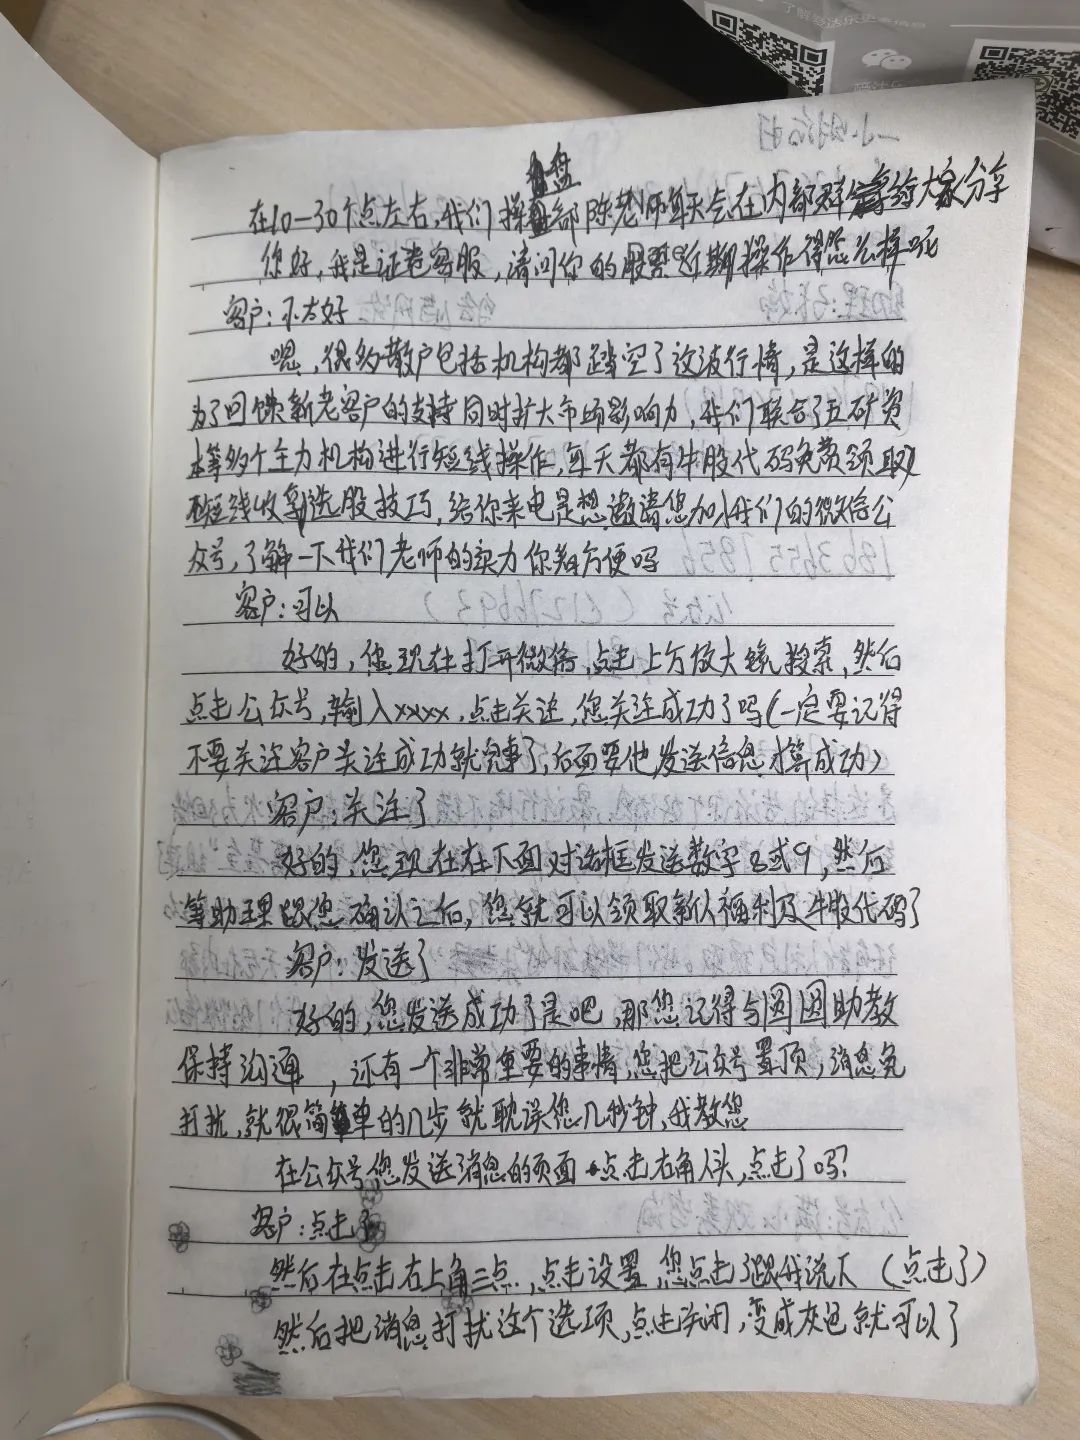 了解多法乐更多信息
盘
在10-30个点左右,我们操盘部陈老师每天会在内部群给大家分享
你好,我是证卷客服,请问你的股票近期操作得怎么样呢
客户:不太好
嗯,很多散户包括机构都踏空了这波行情,是这样的
为了回馈新老客户的支持同时扩大市场影响力,我们联合了五矿资
本等多个主力机构进行短线操作,每天都有牛股代码免费领取
短线收割选股技巧,给你来电是想邀请您加入我们的微信公
众号,了解一下我们老师的实力你看方便吗
客户:可以
好的,您现在打开微信,点击上方放大镜搜索,然后
点击公众号,输入xxxx,点击关注,您关注成功了吗(一定要记得
不要关注客户关注成功就完事了,后面要他发送信息才算成功)
客户:关注了
好的,您现在在下面对话框发送数字8或9,然后
等助理跟您确认之后,您就可以领取新人福利及牛股代码了
客户:发送了
好的,您发送成功了是吧,那您记得与圆圆助教
保持沟通,还有一个非常重要的事情,您把公众号置顶,消息免
打扰,就很简单的几步就耽误您几秒钟,我教您
在公众号您发送消息的页面 点击右角人头,点击了吗?
客户:点击了
然后在点击右上角三点,点击设置,您点击了跟我说下(点击了)
然后把消息打扰这个选项,点击关闭,变成灰色就可以了